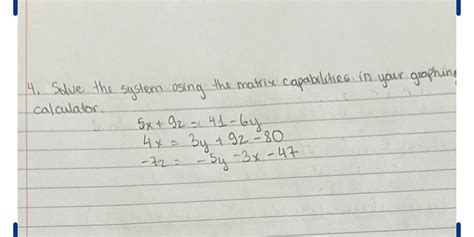 4. Solve the system using the matrix capabilities in your graphing
calculator.
5x + 9z = 41 - 6y
4x = 3y + 9z - 80
-7z = -5y - 3x - 47